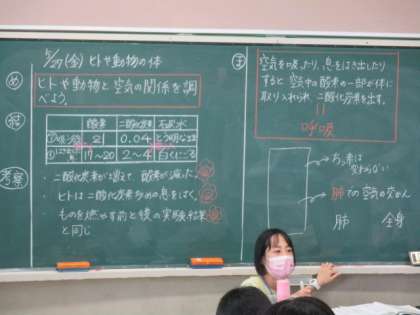 5/27(金) ヒトや動物の体
め
ヒトや動物と空気の関係を調
べよう。
結
酸素 二酸化炭素 石灰水
21 0.04
17〜20 2〜4 白くにごる
考察
・二酸化炭素が増えて、酸素が減った。
・ヒトは二酸化炭素多めの息をはく。
・ものを燃やす前と後の実験結果
と同じ
ま
空気を吸ったり、息をはき出したり
すると空気中の酸素の一部が体に
取り入れられ、二酸化炭素を出す。
呼吸
ちっ素は
変わらない
肺での空気の交かん
肺 全身